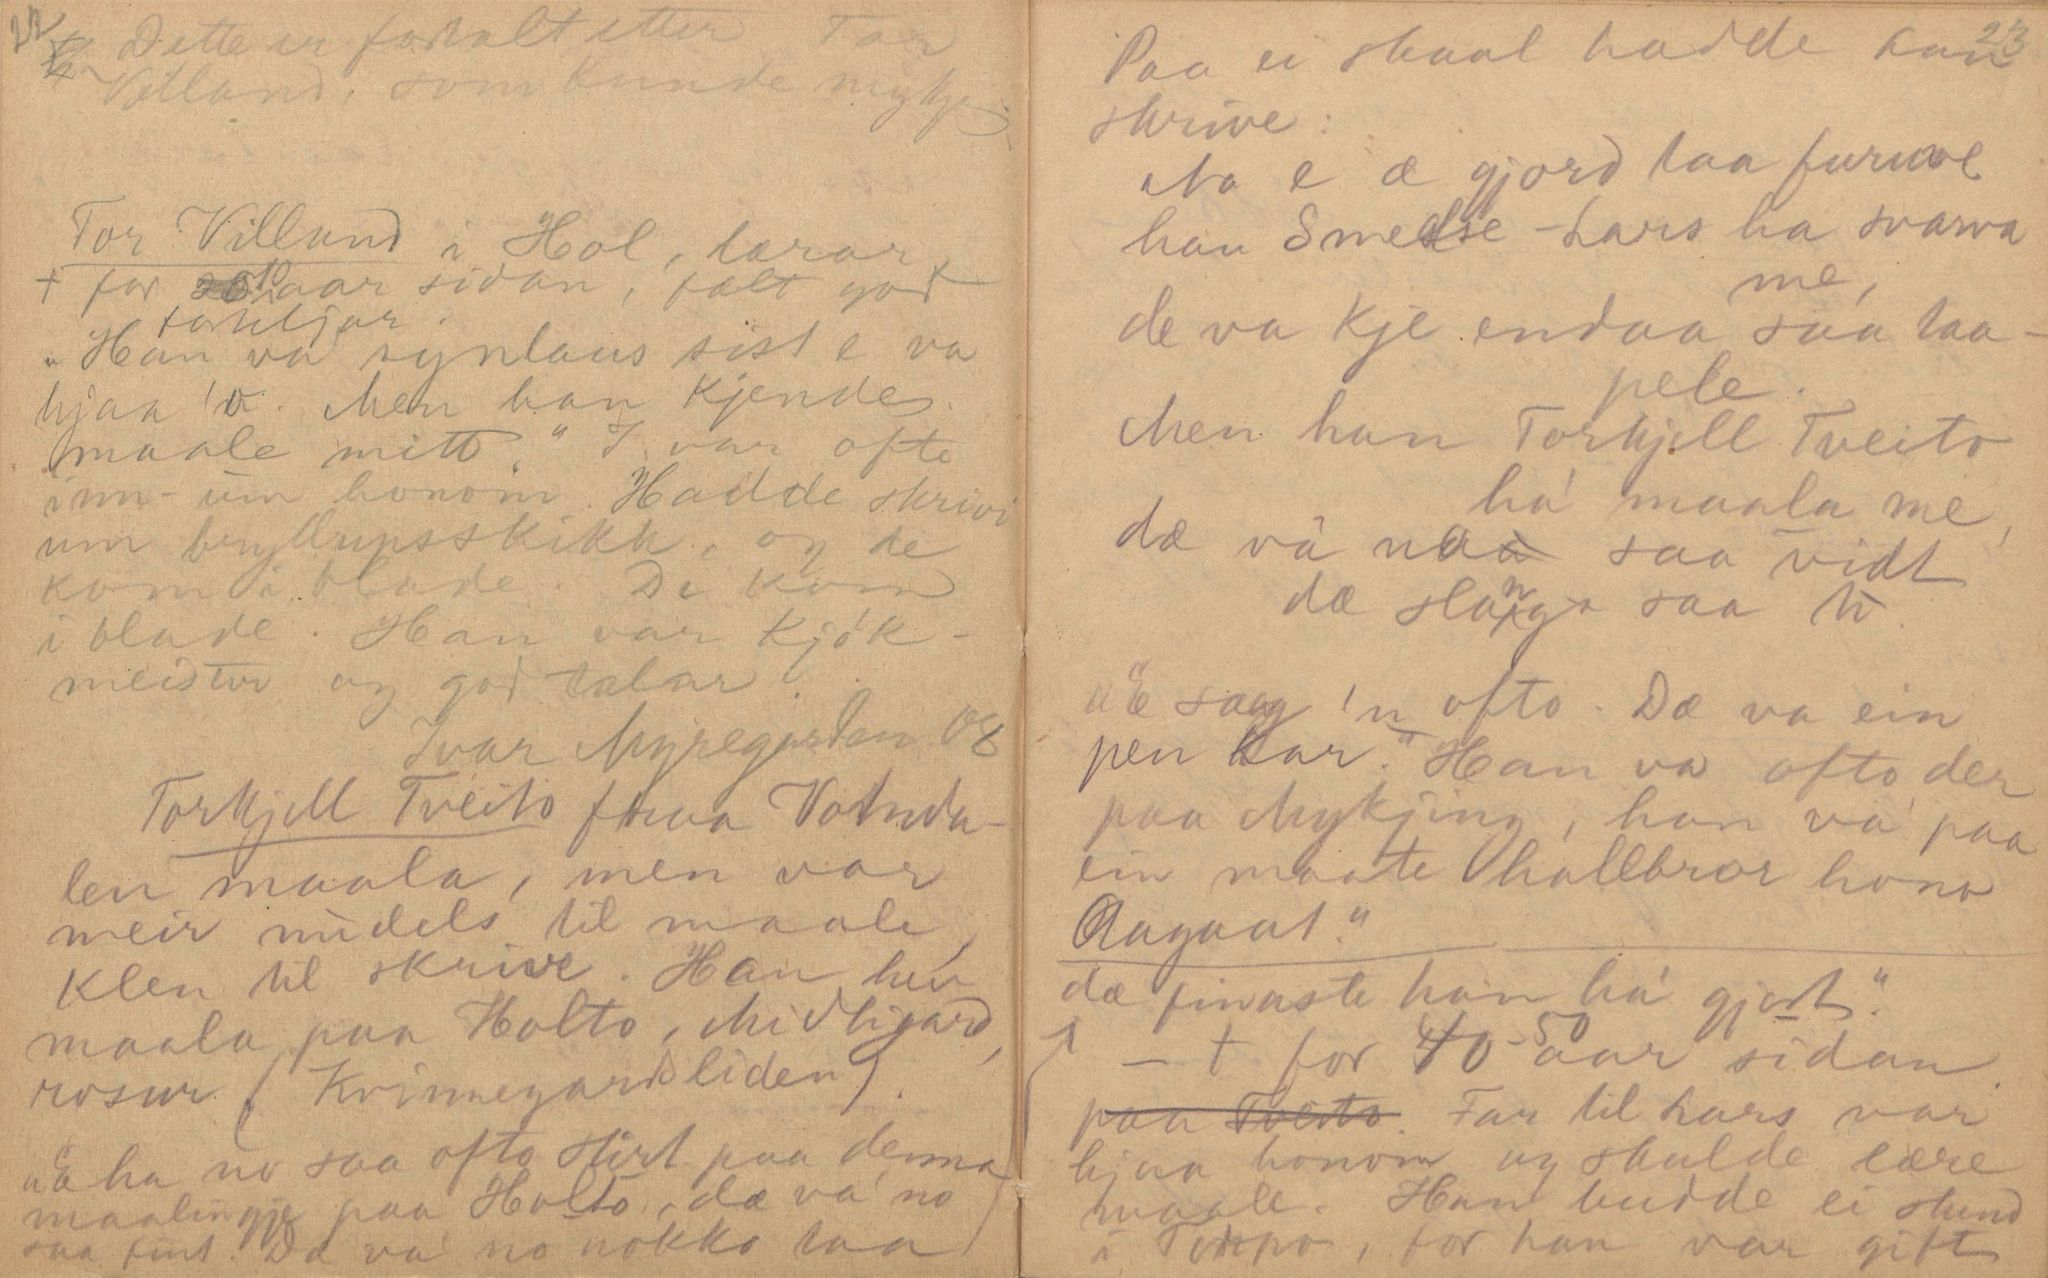 22
Dette er fortalt etter Tor
Villand, som kunde mykje
Tor Villand i Hol, lærar,
† for aar sidan, fælt god
forteljar.
"Han va synlaus sist e va
hjaa 'o. Men han kjende
maale mitt." I. var ofte
inn-um honom. Hadde skrivi
um bryllupsskikk, og de
kom i blade. De kom
i blade. Han var kjøk-
meister og god talar.
Ivar Myregarden 08
Torkjell Tveito fraa Votnda-
len maala, men var
meir nùdels til maale,
klen til skrive. Han hev
maala paa Holto, Midligard,
rosur (Kvinnegardsliden).
"E ha no saa ofto stirt paa denna
maalingje paa Holto, dæ va' no
saa fint. Dæ va' no nokko taa
23
Paa ei skaal hadde han
skrive:
No e æ gjord taa furuve
han Smedse-Lars ha svarva
me,
de va kje endaa saa taa-
pele.
Men han Torkjell Tveito
há maala me,
dæ vâ naa saa vidt
dæ slang saa ti.
"E saag 'n ofto. Dæ va ein
pen kar." Han va ofto der
paa Mykjing, han va' paa
ein maate hallbror hono
Aagaat."
dæ finaste han há gjort."
— † for 40-50 aar sidan
paa Tveito. Far til Lars var
hjaa honom og skulde lære
maale. Han budde ei stund
i Torpo, for han var gift